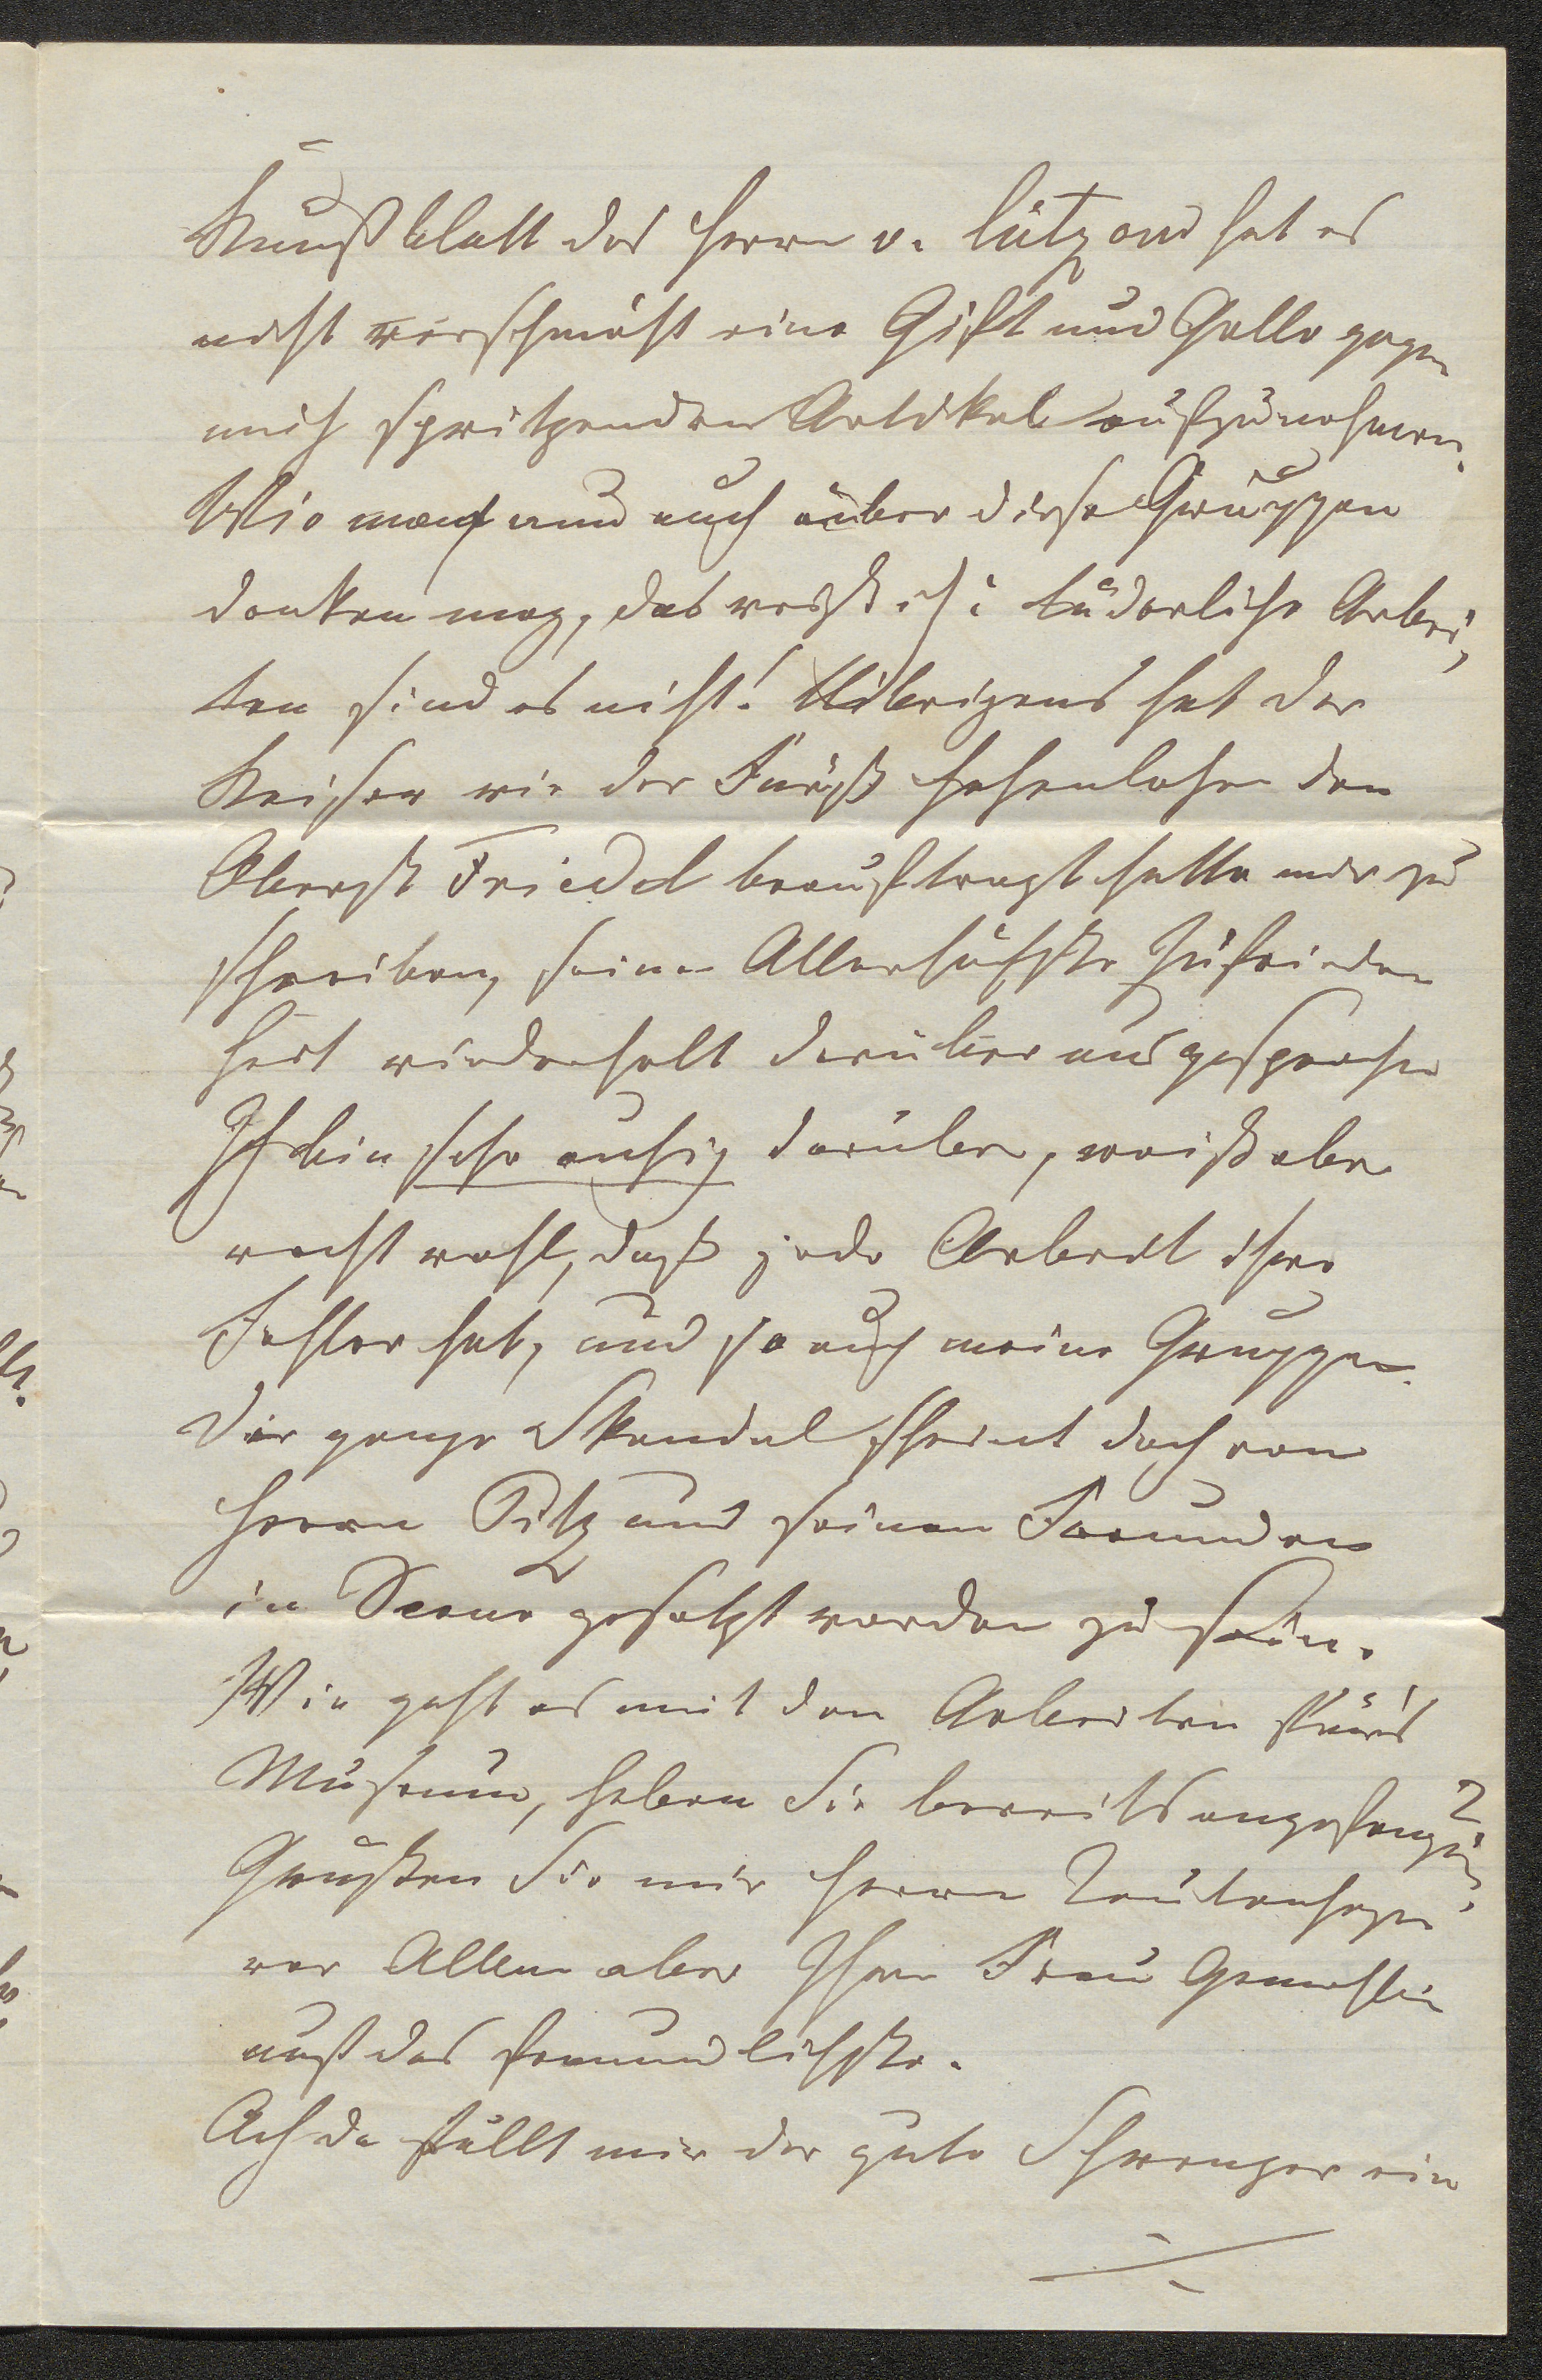 Kunstblatt des Herrn v. Lützow hat es
nicht verschmäht eine Gift und Galle gegen
mich spritzenden Artikel aufzunehmen.
Wie man nun auch über diese Gruppen
denken mag, das weiß ich: lüderliche Arbei,
ten sind es nicht! Uibrigens hat der
Kaiser wie der Fürst Hohenlohe den
Oberst Friedel beauftragt hatte mir zu
schreiben, seine Allerhöchste Zufrieden
heit wiederholt darüber ausgesprochen
Ich bin sehr ruhig darüber, weiß aber
recht wohl, daß jede Arbeit ihre
Fehler hat, und so auch meine Gruppen.
Der ganze Skandal scheint doch von
Herrn Pitz und seinen Freunden
in Scene gesetzt worden zu sein.
Wie geht es mit den Arbeiten für's
Museum, haben Sie bereits angefangen?
Grüßen Sie mir Herrn Tautenhayn,
vor Allem aber Ihre Frau Gemahlin
auf das freundlichste.
Ach da fällt mir der gute Schwenzer ein